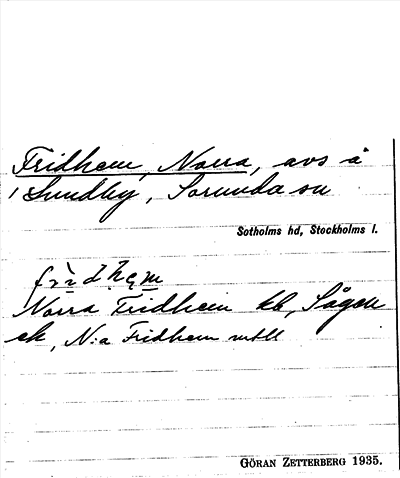 Fridhem, Norra, avs å
1 Sundby, Sorunda sn
Sotholms hd, Stockholms l.
Norra Fridhem kb, Sågen
ek, N:a Fridhem mtll
GÖRAN ZETTERBERG 1935.